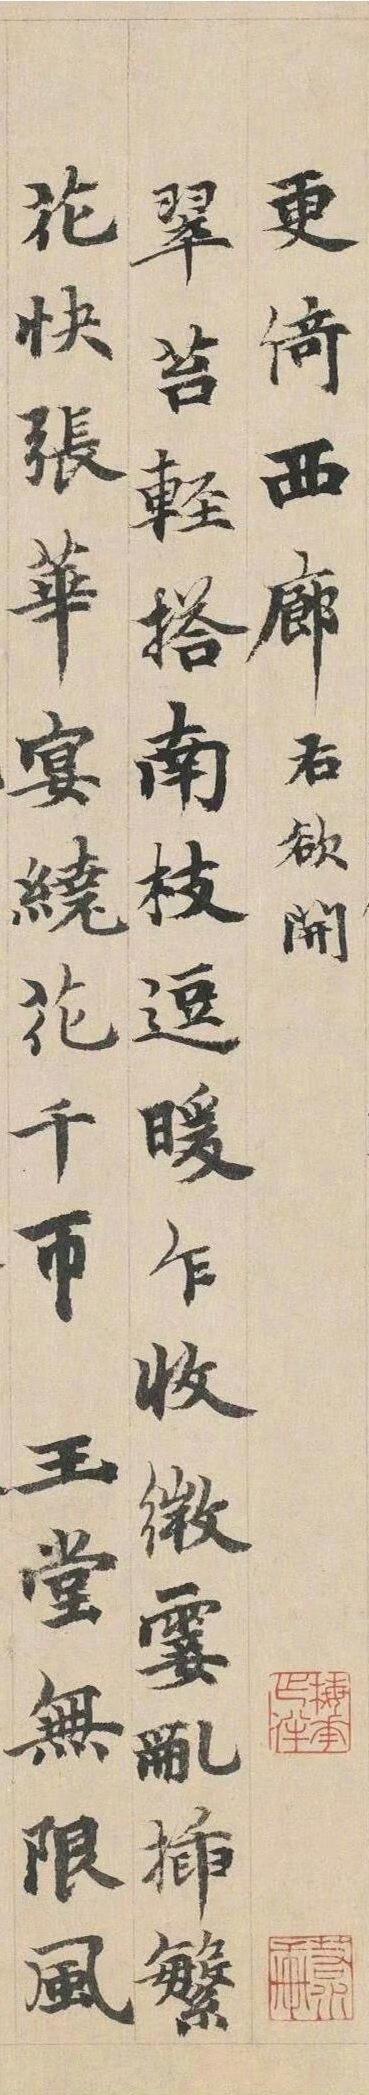 更倚西廊右欲開
翠苔輕搭南枝逗暖乍收微霎亂插繁
花快張華宴繞花千帀玉堂無限風